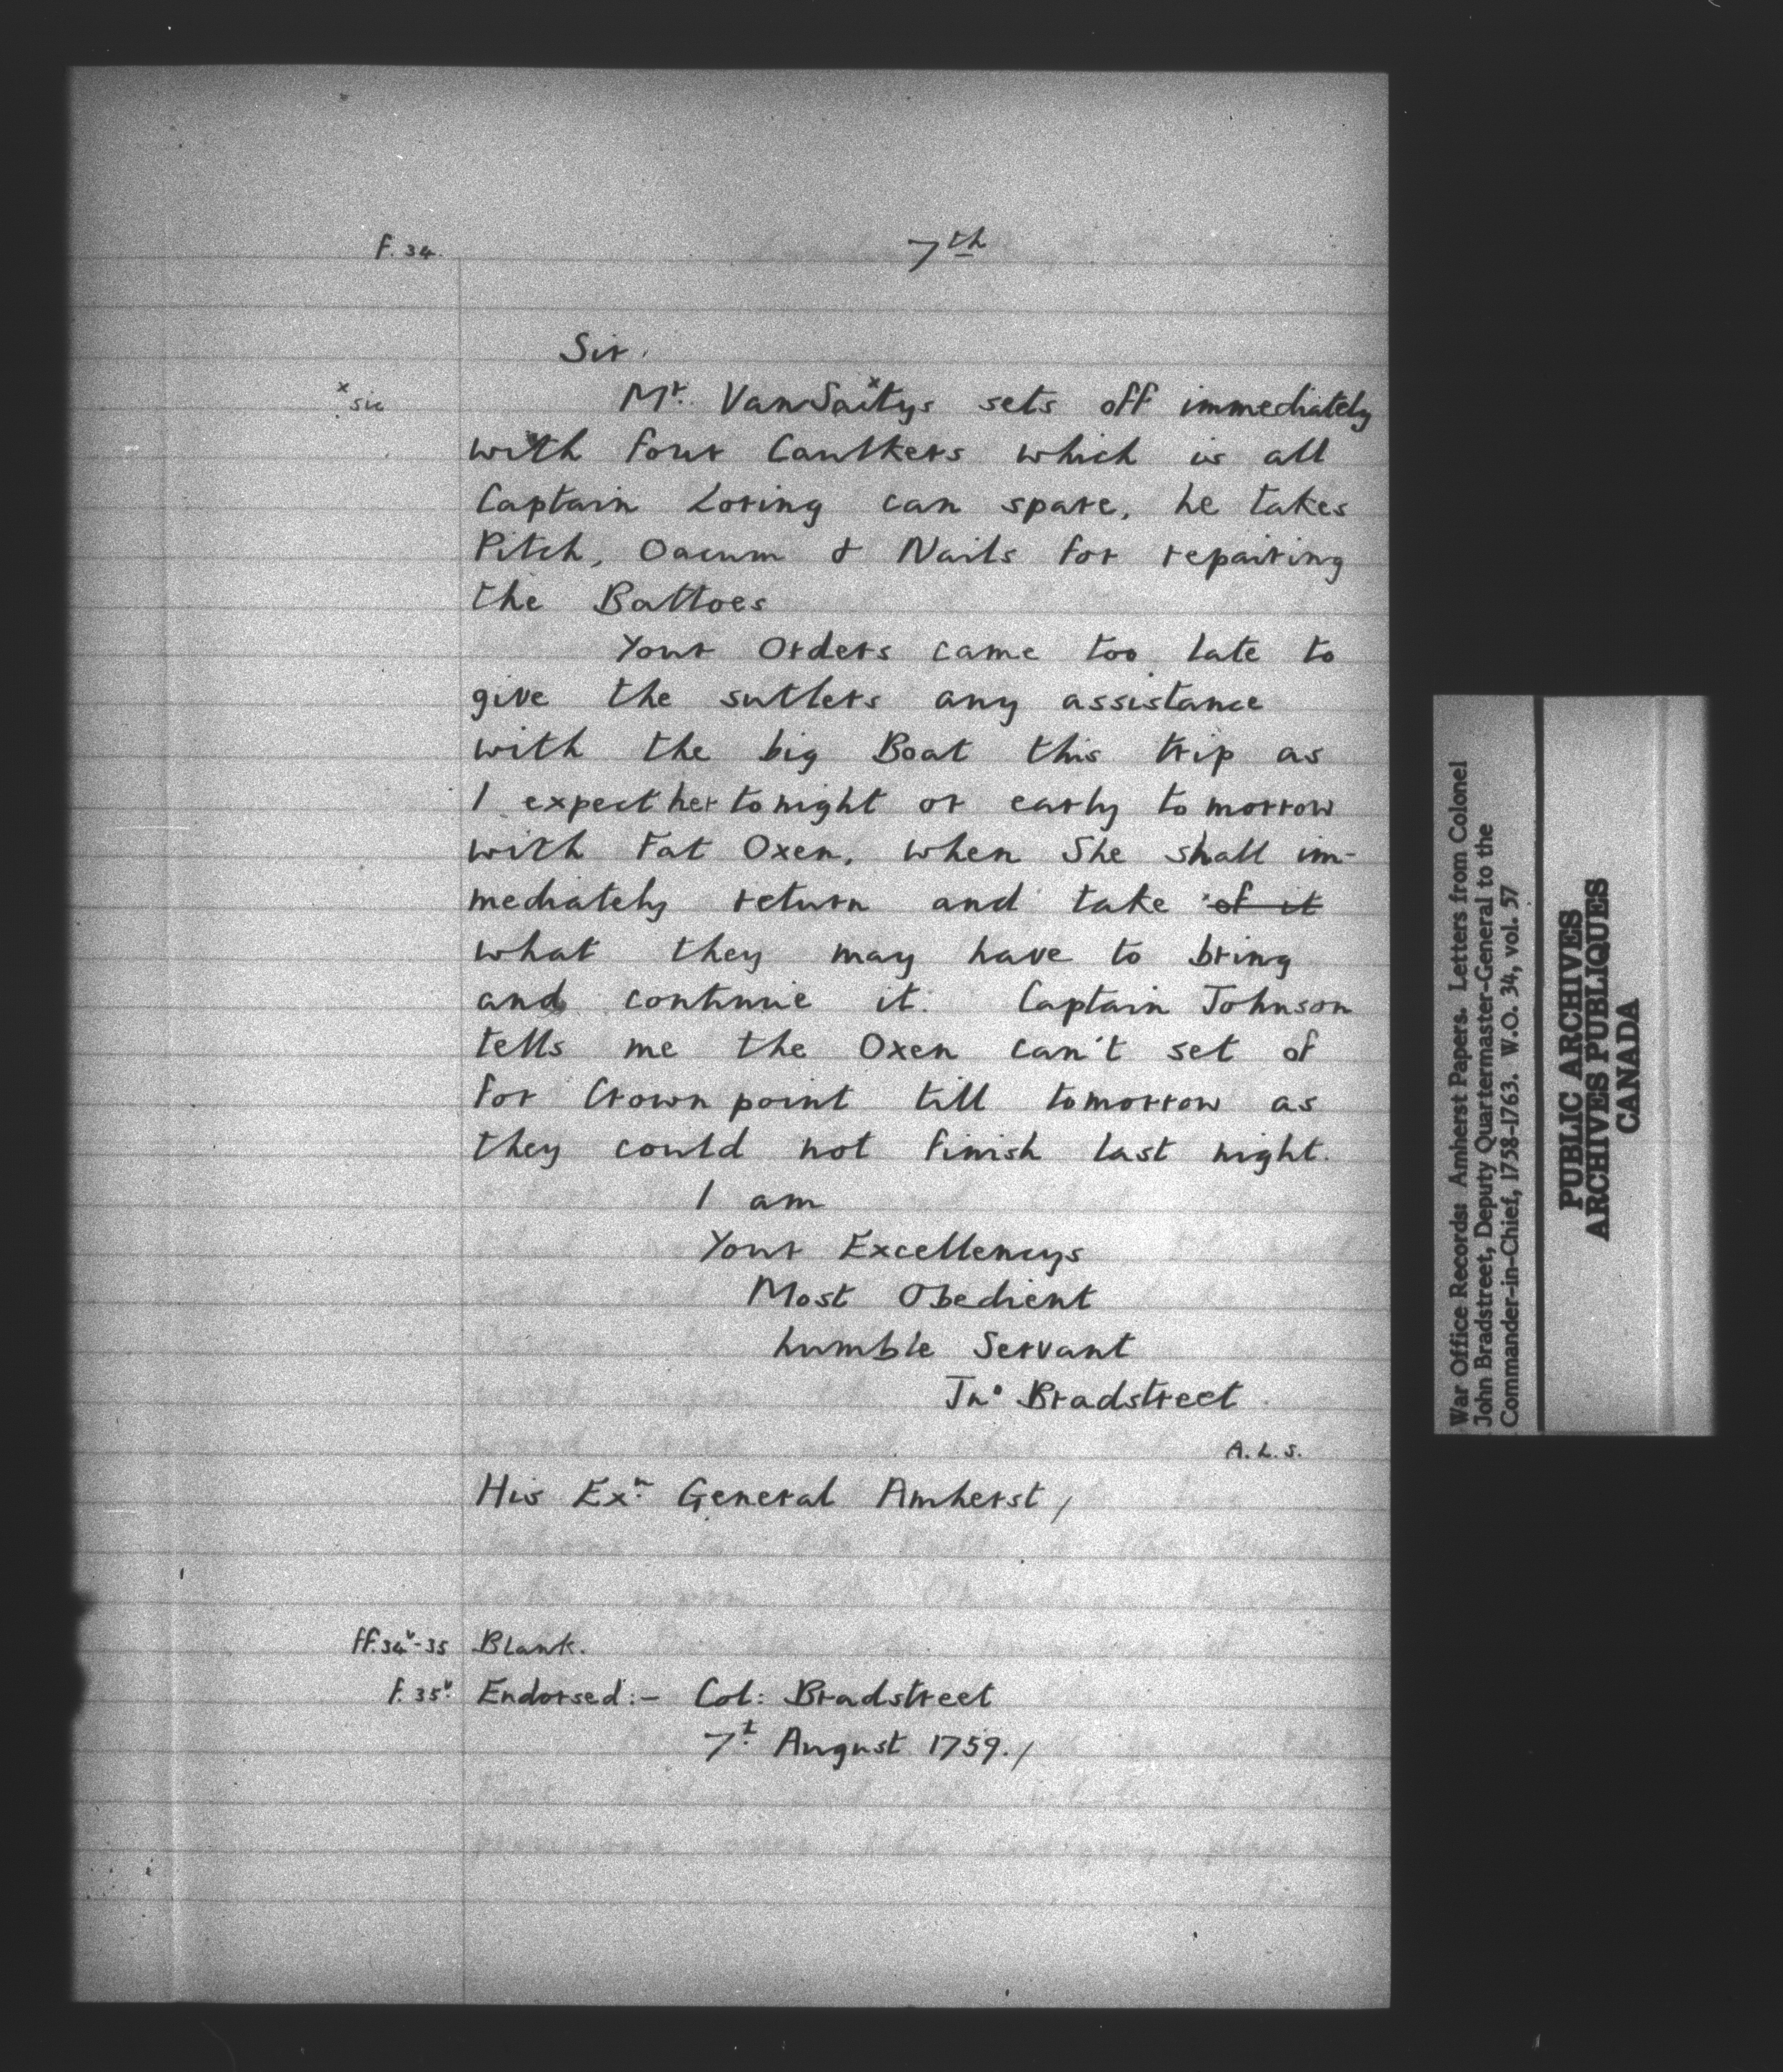 f. 34.
7th
Sir.
x sic
Mr. VanSaitys x sets off immediately
with four Caulkers which is all
Captain Loring can spare, he takes
Pitch, Oacum & Nails for repairing
the Battoes
Your Orders came too late to
give the sutlers any assistance
with the big Boat this trip as
I expect her to night or early to morrow
with Fat Oxen, when She shall im-
mediately return and take of it
what they may have to bring
and continue it. Captain Johnson
tells me the Oxen can't set of
for Crown point till tomorrow as
they could not finish last night.
I am
Your Excellencys
Most Obedient
humble Servant
Jno Bradstreet
A. L. S.
His Exn. General Amherst /
ff. 34v-35 Blank.
f. 35v. Endorsed:- Col: Bradstreet
7t. August 1759. /
War Office Records: Amherst Papers. Letters from Colonel
John Bradstreet, Deputy Quartermaster-General to the
Commander-in-Chief, 1758-1763. W.O. 34, vol. 57
PUBLIC ARCHIVES
ARCHIVES PUBLIQUES
CANADA